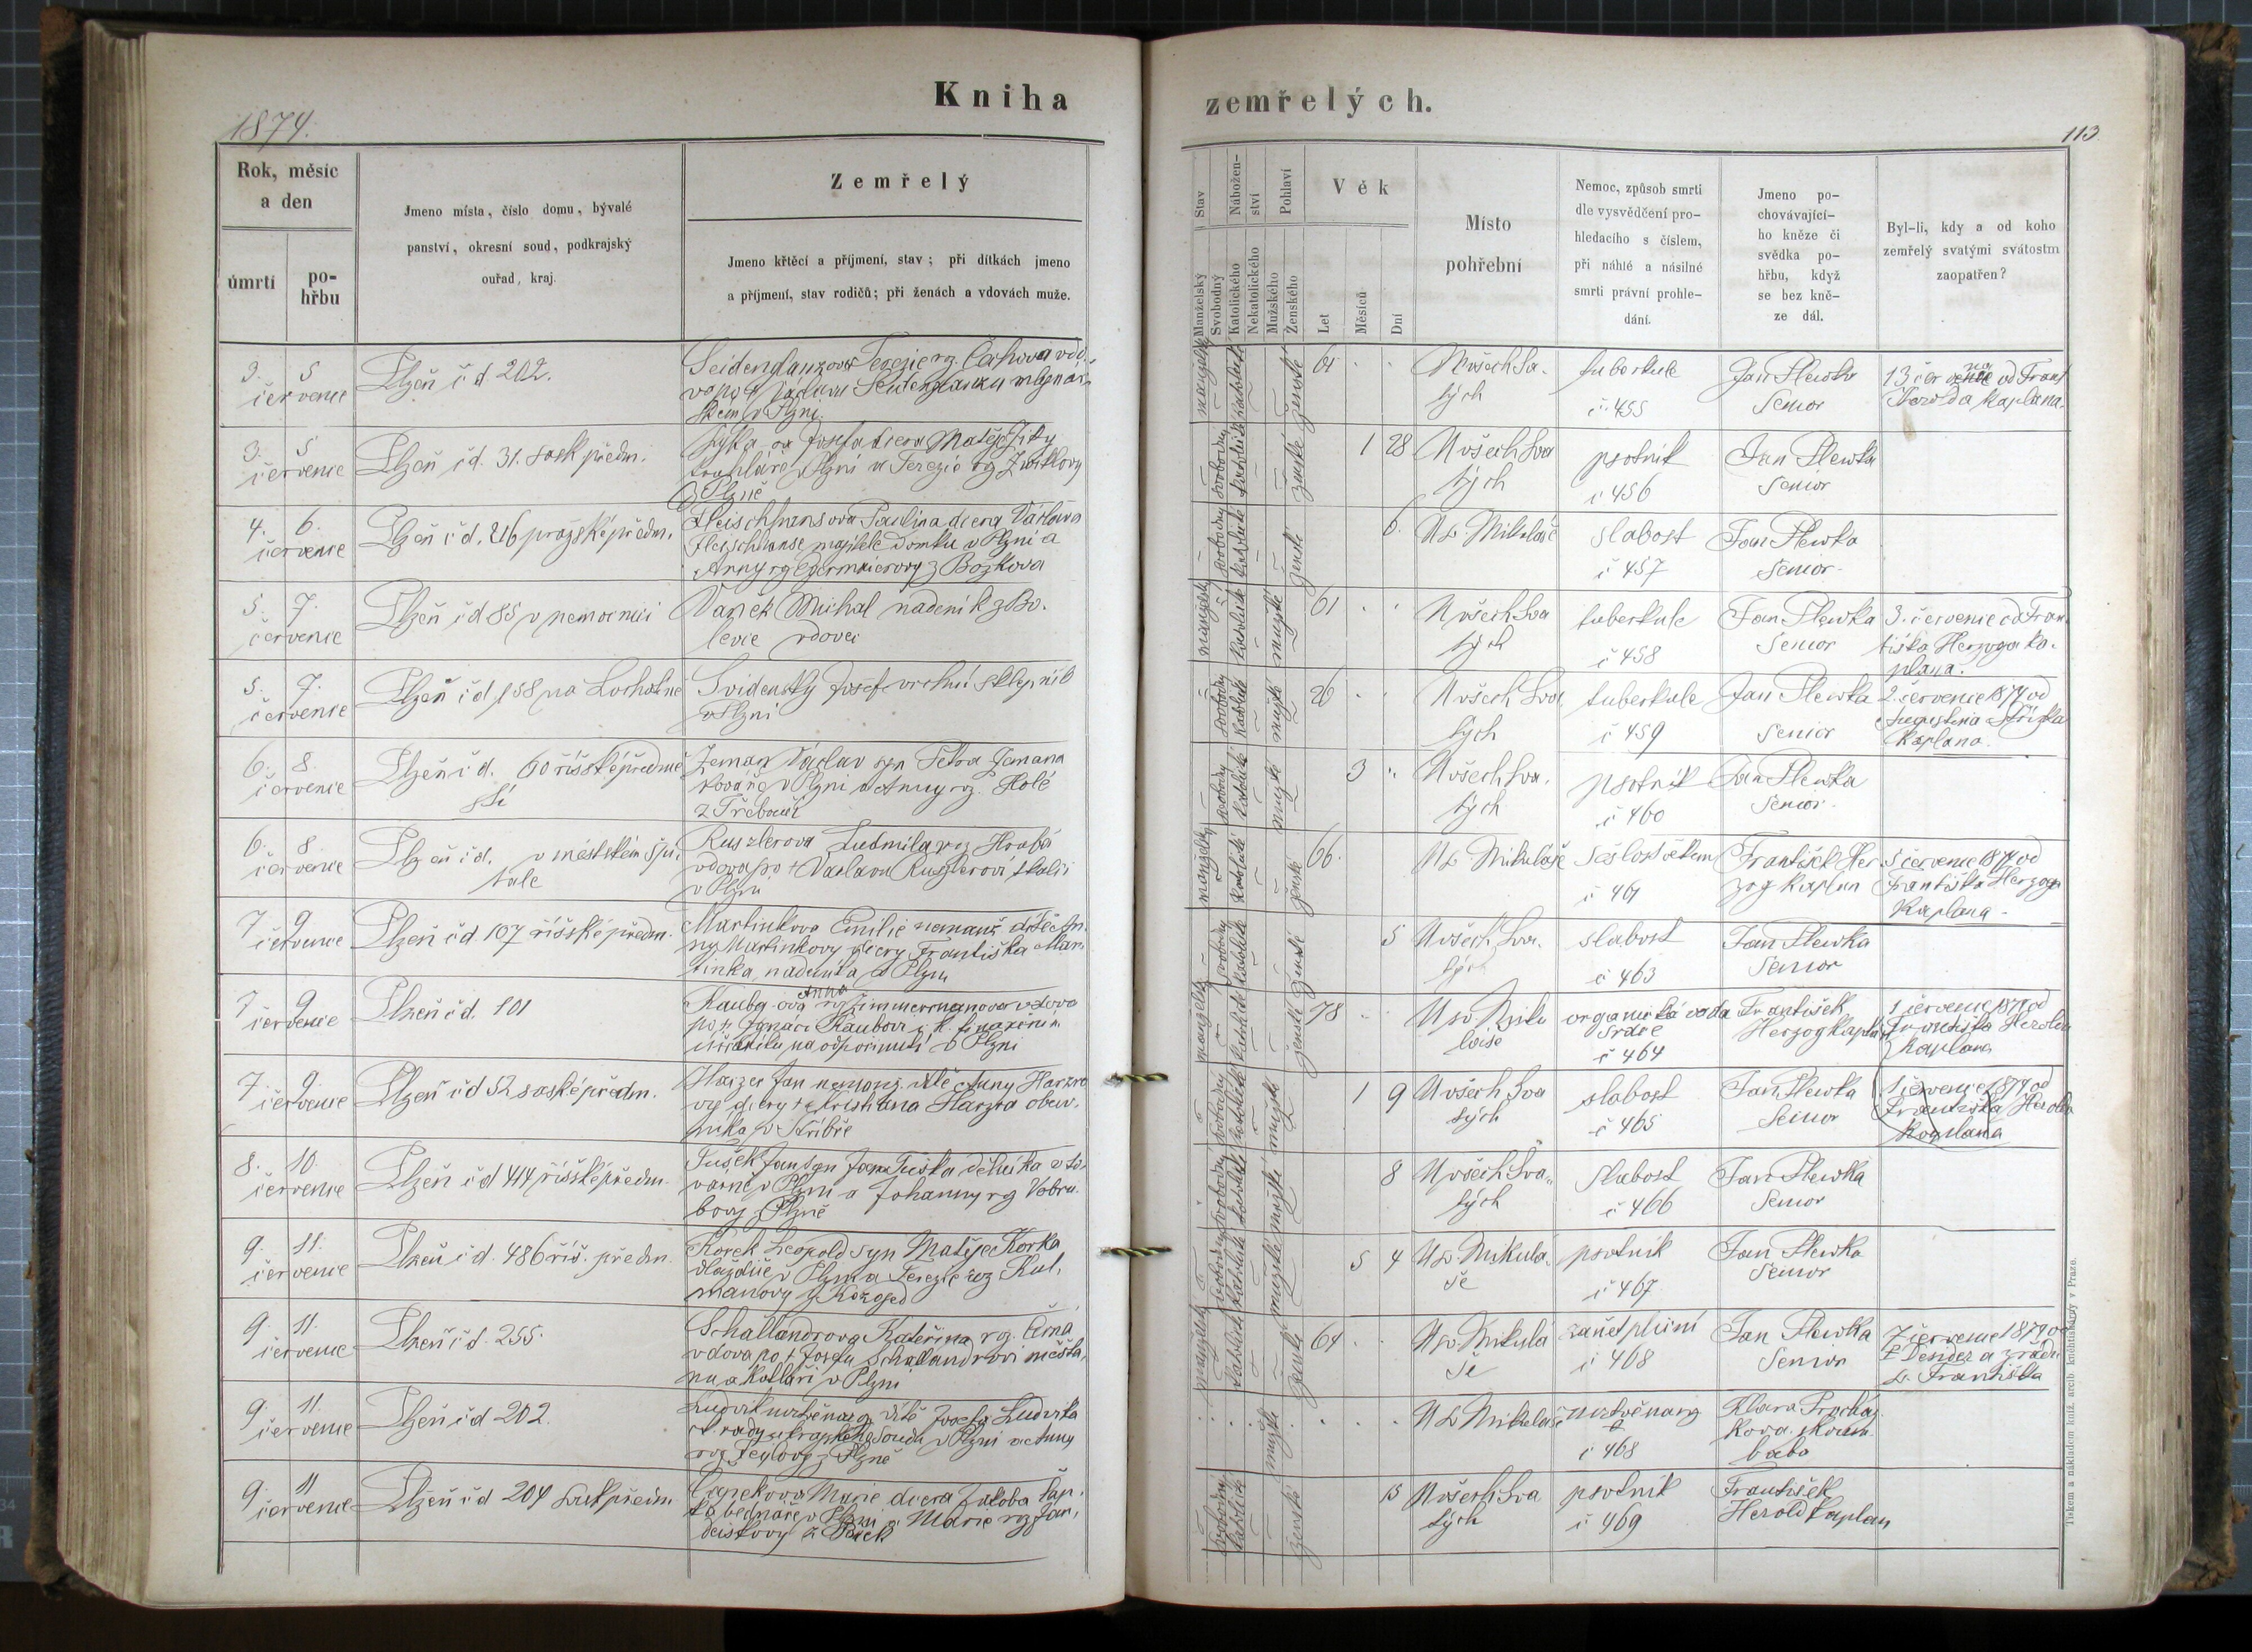 Kniha zemřelých.
1874.
113
Rok, měsíc
a den
úmrtí
po-
hřbu
Jmeno místa, číslo domu, bývalé
panství, okresní soud, podkrajský
ouřad, kraj.
Zemřelý
Jmeno křtěcí a příjmení, stav; při dítkách jmeno
a příjmení, stav rodičů; při ženách a vdovách muže.
Stav
Manželský
Svobodný
Nábožen-
ství
Katolického
Nekatolického
Pohlaví
Mužského
Ženského
Věk
Let
Měsíců
Dní
Místo
pohřební
Nemoc, způsob smrti
dle vysvědčení pro-
hledacího s číslem,
při náhlé a násilné
smrti právní prohle-
dání.
Jmeno po-
chovávající-
ho kněze či
svědka po-
hřbu, když
se bez kně-
ze dál.
Byl-li, kdy a od koho
zemřelý svatými svátostmi
zaopatřen?
3. 5
července
Plzeň čd 202.
Seidenglanzova Terezie rz.
vdova po † Václavu Seidenglanzu mlynář-
ském v Plzni
manželský katolické ženské
61
U všech Sva-
tých
tuberkule
č 455
Jan Hlewka
Senior
od Frant
Herolda kaplana.
3. 5
července
Plzeň čd. 31. sask předm.
Josefa dcera Matěje
truhláře v Plzni a Terezie rz
z Plzně
svobodný katolické ženské
1 28
U všech Sva
tých
psotník
č 456
Jan Hlewka
Senior
4. 6.
července
Plzeň čd. 216 pražské předm.
Fleischhansova Paulina dcera Václava
Fleischhanse majitele domku v Plzni a
Anny rz z Božkova
svobodný katolické ženské
6.
U sv. Mikuláše
slabost
č 457
Jan Hlewka
Senior
5. 7.
července
Plzeň čd 85 v nemocnici
Vanek Michal nadeník z Bo-
levce vdovec
manželský katolické mužské
61
U všech Sva
tých
tuberkule
č 458
Jan Hlewka
Senior
3. července od Fran-
tiška Herzoga ka-
plana.
5. 7.
července
Plzeň čd 158 na Lochotíně
Svidenský Josef vrchní sklepník
v Plzni
svobodný katolické mužské
26
U všech Sva
tých
tuberkule
č 459
Jan Hlewka
Senior
2. července 1874 od
Augustina
kaplana.
6. 8.
července
Plzeň čd. 60 říšské předmě
stí
Zeman Václav syn Petra Zemana
kováře v Plzni a Anny rz. Holé
z
svobodný katolické mužské
3
U všech Sva-
tých
psotník
č 460
Jan Hlewka
Senior
6. 8.
července
Plzeň čd. v městském špi-
tále
Ruszlerova Ludmila rz Hrubá
vdova po † Václavu Ruszlerovi
v Plzni
manželský katolické ženské
66.
U sv Mikuláše
Sešlost věkem
č 461
František Her-
zog kaplan
5 července 1874 od
Františka Herzoga
kaplana
7 9
července
Plzeň čd 107 říšské předm.
Martinkova Emilie nemanž. dítě An-
ny Martinkovy dcery Františka Mar-
tinka nadeníka v Plzni
svobodný katolické ženské
5
U všech Sva-
tých
slabost
č 463
Jan Hlewka
Senior
7 9
července
Plzeň čd. 101
Kaubg-ova Anna rz Zimmermanova vdova
po † Ignáci Kaubovi
na odpočinutí v Plzni
manželský katolické ženské
78
U sv. Miku
láše
organická vada
srdce
č 464
František
Herzog kaplan
1 července 1874 od
Františka Herolda
kaplana
7. 9
července
Plzeň čd 52 saské předm.
Harzer Jan nemanž. dítě Anny Harzro
vy dcery † Kristiana Harzra obuv-
níka v Stříbře
svobodný katolické mužské
1 9
U všech Sva
tých
slabost
č 465
Jan Hlewka
Senior
1 července 1874 od
Františka Herolda
kaplana
8. 10
července
Plzeň čd 414 říšské předm.
Tušek Jan syn Jana Tuška dělníka
v Plzni a Johanny rz
z Plzně
svobodný katolické mužské
8
U všech Sva-
tých
Slabost
č 466
Jan Hlewka
Senior
9. 11.
července
Plzeň čd. 486 říš. předm.
Korek Leopold syn Matěje Korka
v Plzni a Terezie roz Kul-
manovy z Kozojed
svobodný katolické mužské
5 4
U sv Mikulá-
še
psotník
č 467
Jan Hlewka
Senior
9. 11.
července
Plzeň čd. 255.
Schallandrova Kateřina rz. Černá
vdova po † Josefu Schallandrovi měšťa-
nu a v Plzni
manželský katolické ženské
64
U sv. Mikulá
še
zánět plicní
č 468
Jan Hlewka
Senior
7 července 1874 od
z řádu
sv. Františka
9. 11.
července
Plzeň čd 202.
Ludvik mrtvěnaroz. dítě Josefa Ludvika
rady krajského Soudu v Plzni a Anny
roz z Plzně
mužské
U sv Mikuláše
mrtvě naroz
č 468
Klara Procház-
kova zkouš.
baba
9. 11
července
Plzeň čd 204 sask předm
Čapekova Marie dcera Jakoba Čap-
ka bednáře v Plzni a Marie rz
svobodný katolické ženské
15
U všech Sva
tých
psotník
č 469
František
Herold kaplan
Tiskem a nákladem kníž. arcib. knihtiskárny v Praze.